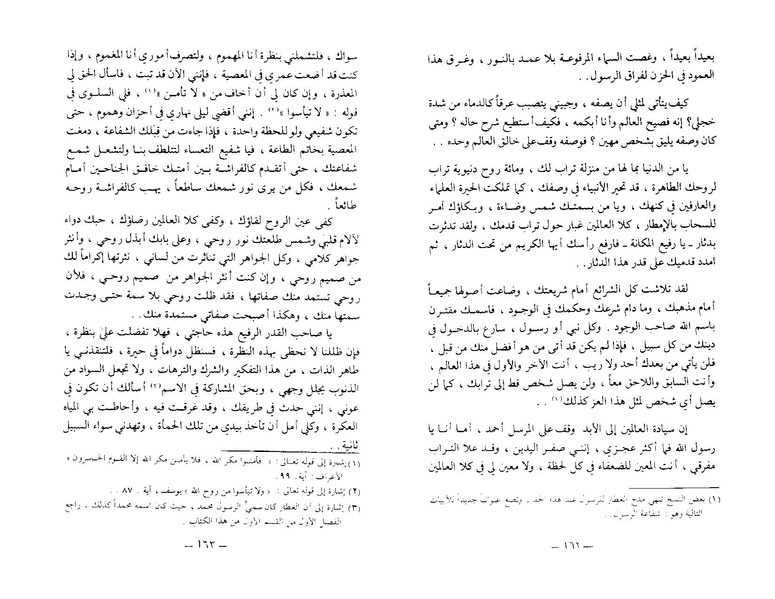 بعيداً بعيداً ، وغصت السماء المرفوعة بلا عمد بالنور ، وغرق هذا
العمود في الحزن لفراق الرسول . .
كيف يتأتى لمثلي أن يصفه ، وجبيني يتصبب عرقاً كالدماء من شدة
خجلي ؟ إنه فصيح العالم وأنا أبكمه ، فكيف أستطيع شرح حاله ؟ ومتى
كان وصفه يليق بشخص مهين ؟ فوصفه وقف على خالق العالم وحده . .
يا من الدنيا بما لها من منزلة تراب لك ، ومائة روح دنيوية تراب
لروحك الطاهرة ، قد تحير الأنبياء في وصفك ، كما تملكت الحيرة العلماء
والعارفين في كنهك ، ويا من بسمتك شمس وضاءة ، وبكاؤك آمر
للسحاب بالإمطار ، كلا العالمين غبار حول تراب قدمك ، ولقد تدثرت
بدثار ـ يا رفيع المكانة ـ فارفع رأسك أيها الكريم من تحت الدثار ، ثم
امدد قدميك على قدر هذا الدثار . .
لقد تلاشت كل الشرائع أمام شريعتك ، وضاعت أصولها جميعاً
أمام مذهبك ، وما دام شرعك وحكمك في الوجود ، فاسمك مقترن
باسم الله صاحب الوجود . وكل نبي أو رسول ، سارع بالدخول في
دينك من كل سبيل ، فإذا لم يكن قد أتى من هو أفضل منك من قبل ،
فلن يأتي من بعدك أحد ولا ريب ، أنت الآخر والأول في هذا العالم ،
وأنت السابق واللاحق معاً ، ولن يصل شخص قط إلى ترابك ، كما لن
يصل أي شخص لمثل هذا العز كذلك (١) . .
إن سيادة العالمين إلى الأبد وقف على المرسل أحمد ، أما أنا يا
رسول الله فما أكثر عجزي ، إنني صفر اليدين ، وقد علا التراب
مفرقي ، أنت المعين للضعفاء في كل لحظة ، ولا معين لي في كلا العالمين
(١) بعض النسخ تنهي مدح العطار للرسول عند هذا الحد ، وتضع عنواناً جديداً للأبيات
التالية وهو : شفاعة الرسول . .
ـ ١٦٢ ـ
سواك ، فلتشملني بنظرة أنا المهموم ، ولتصرف أموري أنا المغموم ، وإذا
كنت قد أضعت عمري في المعصية ، فإنني الآن قد تبت ، فاسأل الحق لي
المعذرة ، وإن كان لي أن أخاف من « لا تأمن » (١) ، فلي السلوى في
قوله : « لا تيأسوا » (٢) . إنني أقضي ليلي نهاري في أحزان وهموم ، حتى
تكون شفيعي ولو للحظة واحدة ، فإذا جاءت من قبلك الشفاعة ، دمغت
المعصية بخاتم الطاعة ، فيا شفيع التعساء لتتلطف بنا ولتشعل شمع
شفاعتك ، حتى أتقدم كالفراشة بين أمتك خافق الجناحين أمام
شمعك ، فكل من يرى نور شمعك ساطعاً ، يهب كالفراشة روحه
طائعاً .
كفى عين الروح لقاؤك ، وكفى كلا العالمين رضاؤك ، حبك دواء
لآلام قلبي وشمس طلعتك نور روحي ، وعلى بابك أبذل روحي ، وأنثر
جواهر كلامي ، وكل الجواهر التي تناثرت من لساني ، نثرتها إكراماً لك
من صميم روحي ، وإن كنت أنثر الجواهر من صميم روحي ، فلأن
روحي تستمد منك صفاتها ، فقد ظلت روحي بلا سمة حتى وجدت
سمتها منك ، وهكذا أصبحت صفاتي مستمدة منك . .
يا صاحب القدر الرفيع هذه حاجتي ، فهلا تفضلت علي بنظرة ،
فإن ظللنا لا نحظى بهذه النظرة ، فسنظل دواماً في حيرة ، فلتنقذني يا
طاهر الذات ، من هذا التفكير والشرك والترهات ، ولا تجعل السواد من
الذنوب يجلل وجهي ، وبحق المشاركة في الاسم (٣) أسألك أن تكون في
عوني ، إنني حدث في طريقك ، وقد غرقت فيه ، وأحاطت بي المياه
العكرة ، وكلي أمل أن تأخذ بيدي من تلك الحمأة ، وتهدني سواء السبيل
ثانية . .
(١) إشارة إلى قوله تعالى : « أفأمنوا مكر الله ، فلا يأمن مكر الله إلا القوم الخاسرون »
الأعراف : آية . ٩٩ .
(٢) إشارة إلى قوله تعالى : « ولا تيأسوا من روح الله » يوسف ، آية . ٨٧ . .
(٣) إشارة إلى أن العطار كان سمي الرسول محمد ، حيث كان اسمه محمداً كذلك ، راجع
الفصل الأول من القسم الأول من هذا الكتاب .
ـ ١٦٣ ـ